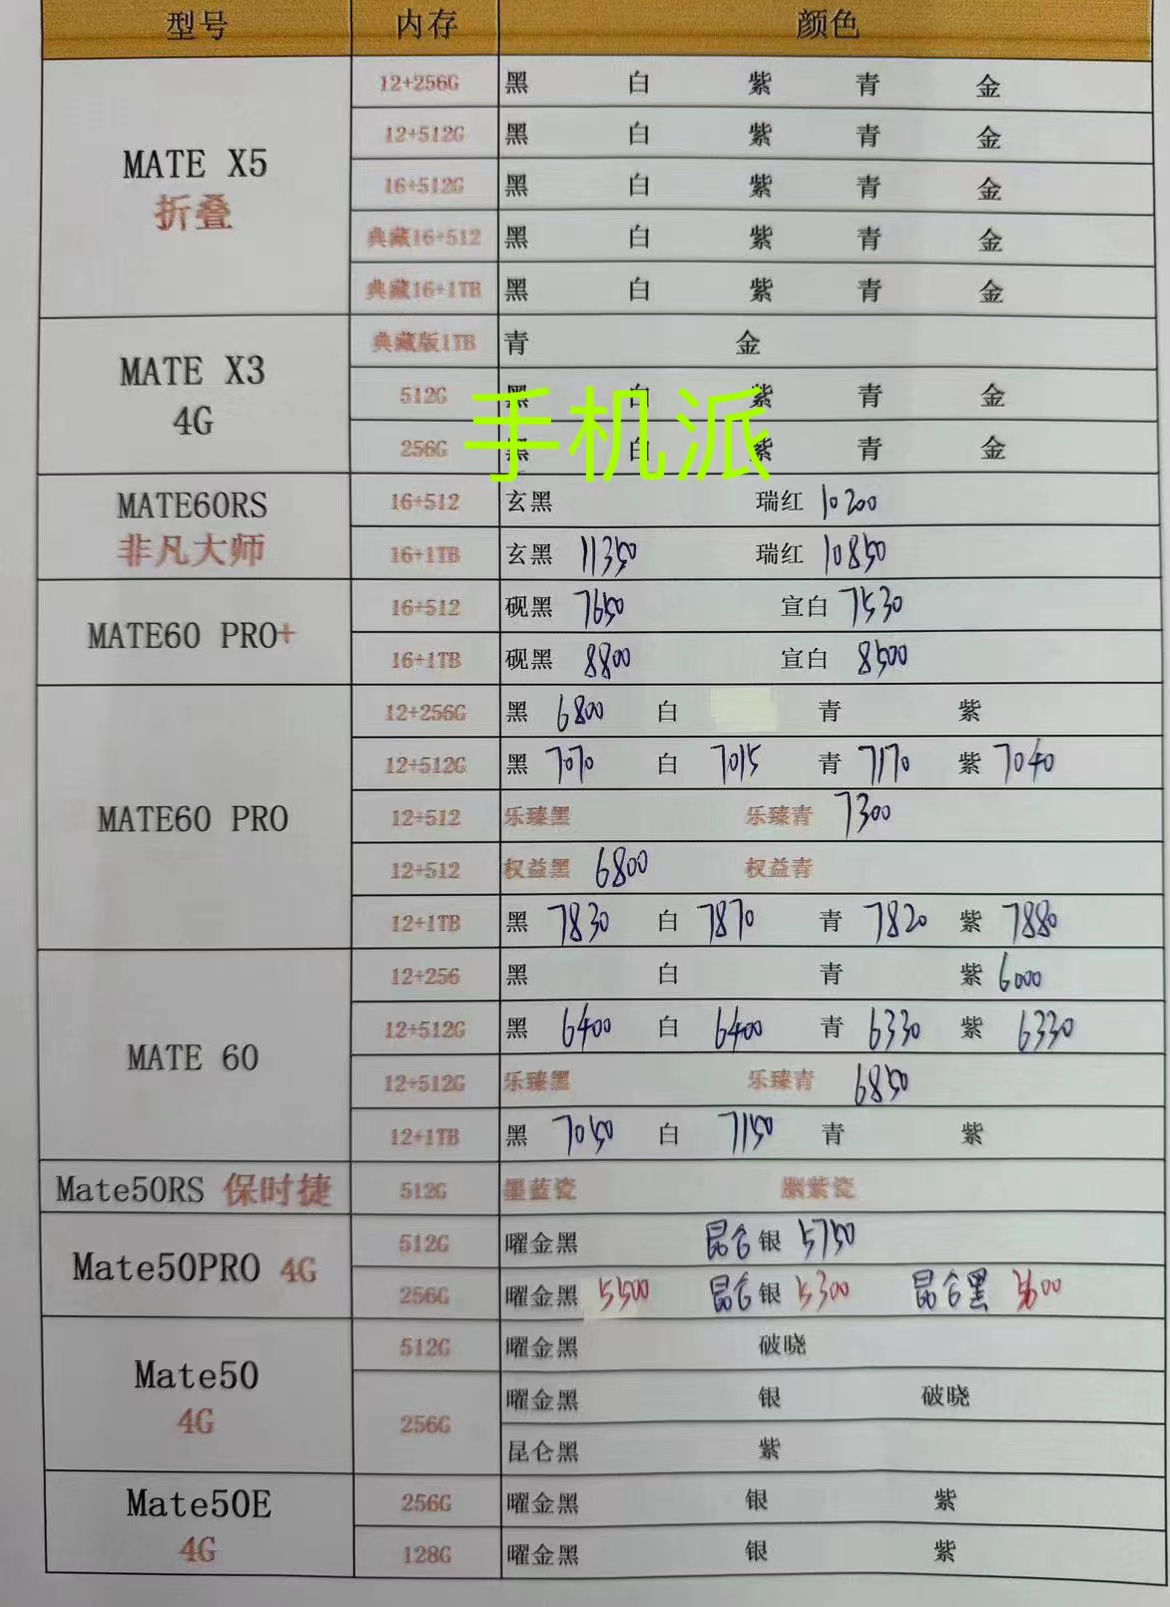 型号 内存 颜色
MATE X5 折叠
12+256G 黑 白 紫 青 金
12+512G 黑 白 紫 青 金
16+512G 黑 白 紫 青 金
典藏16+512 黑 白 紫 青 金
典藏16+1TB 黑 白 紫 青 金
MATE X3 4G
典藏版1TB 青 金
512G 黑 白 紫 青 金
手机派
256G 黑 白 紫 青 金
MATE60RS 非凡大师
16+512 玄黑 瑞红 10200
16+1TB 玄黑 11350 瑞红 10850
MATE60 PRO+
16+512 砚黑 7650 宣白 7530
16+1TB 砚黑 8800 宣白 8500
MATE60 PRO
12+256G 黑 6800 白 青 紫
12+512G 黑 7070 白 7015 青 7170 紫 7040
12+512 乐臻黑 乐臻青 7300
12+512 权益黑 6800 权益青
12+1TB 黑 7830 白 7870 青 7820 紫 7880
MATE 60
12+256 黑 白 青 紫 6000
12+512G 黑 6400 白 6400 青 6330 紫 6330
12+512G 乐臻黑 乐臻青 6850
12+1TB 黑 7050 白 7150 青 紫
Mate50RS 保时捷 512G 墨蓝瓷 紫瓷
Mate50PRO 4G
512G 曜金黑 昆仑银 5750
256G 曜金黑 5500 昆仑银 5300 昆仑黑
Mate50 4G
512G 曜金黑 破晓
256G 曜金黑 银 破晓
昆仑黑 紫
Mate50E 4G
256G 曜金黑 银 紫
128G 曜金黑 银 紫